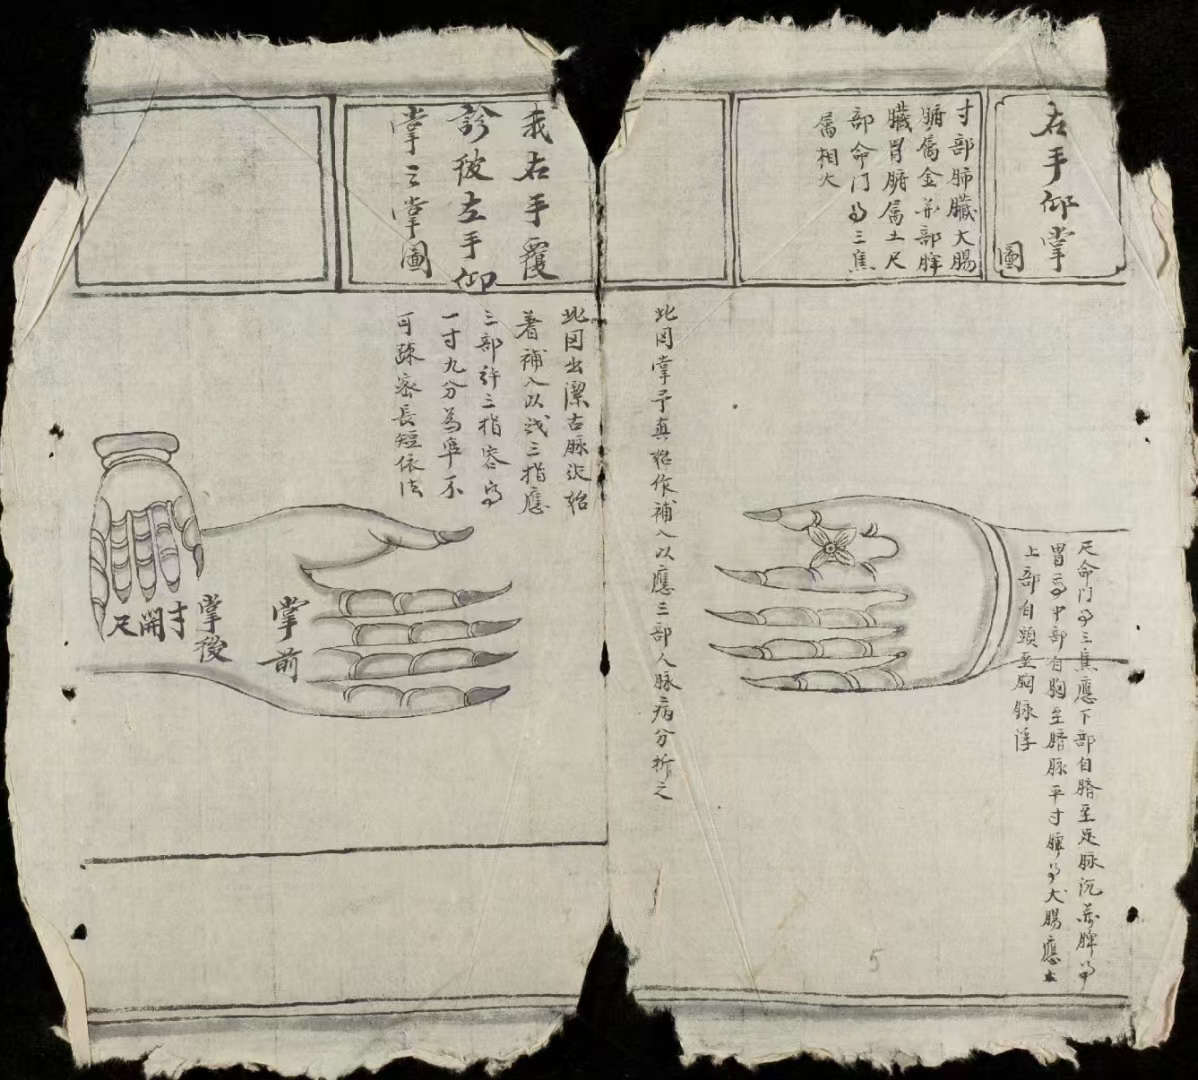 右手仰掌
圖
寸部肺臟大腸
腑属金关部脾
臟胃腑属土尺
部命門为三焦
属相火
尺命门为三焦應下部自臍至足脉沉关脾为
胃为中部自胸至臍脉平寸肺为大腸應上
上部自頭至胸脉浮
此图掌予真始作補入以應三部人脉病分折之
我右手覆
診彼左手仰
掌之掌圖
此图出潔古脉訣始
著補入以我三指應
三部許三指容为
一寸九分為準不
可疎密長短依法
寸
開
尺
掌後
掌前
5